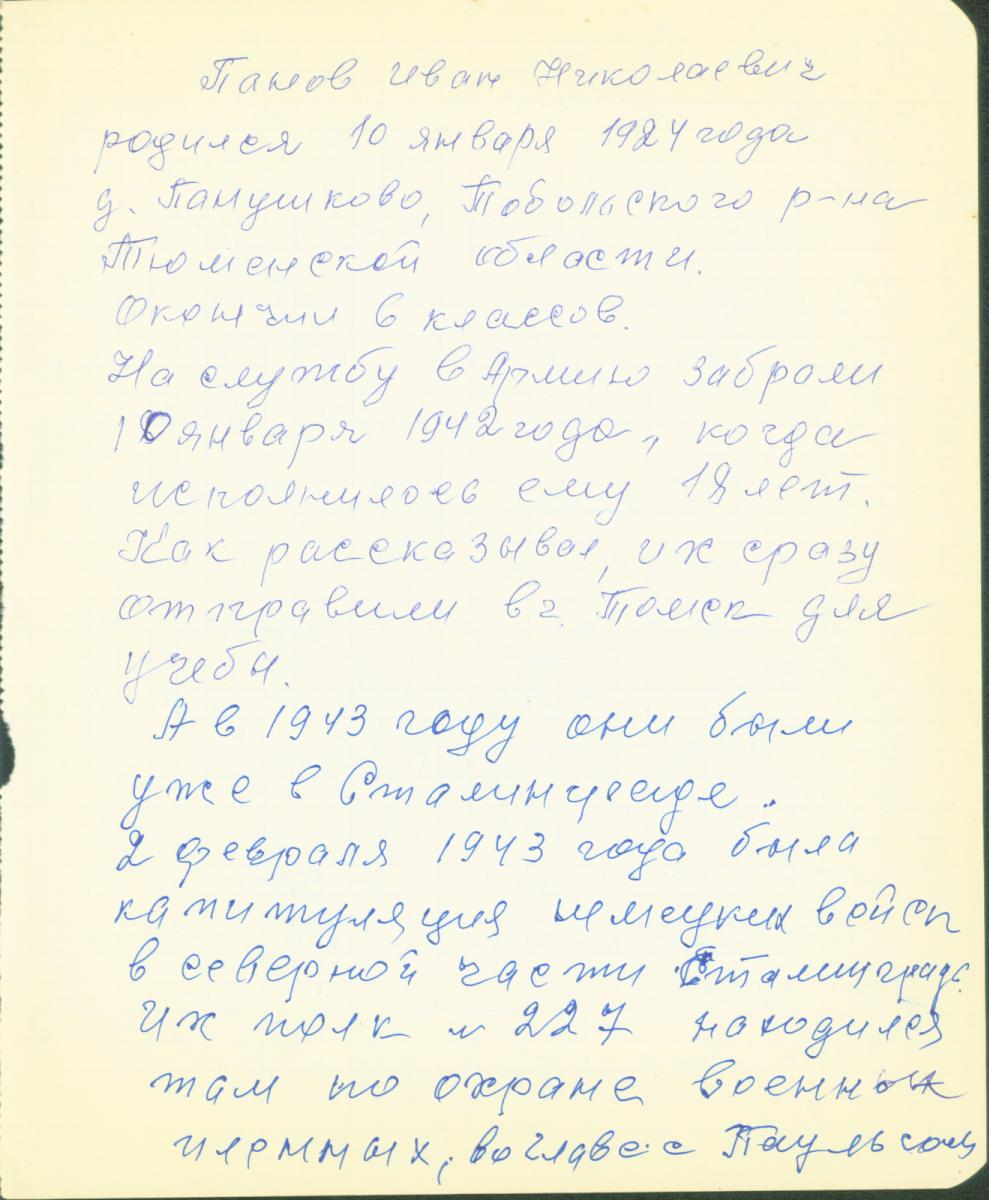 Панов Иван Николаевич
родился 10 января 1924 года
д. Панушково, Тобольского р-на
Тюменской области.
Окончил 6 классов.
На службу в Армию забрали
10 января 1942 года, когда
исполнилось ему 18 лет.
Как рассказывал, их сразу
отправили в г. Томск для
учебы.
А в 1943 году они были
уже в Сталинграде.
2 февраля 1943 года была
капитуляция немецких войск
в северной части Сталинграда.
Их полк № 227 находился
там по охране военных
пленных, во главе с Паульсом